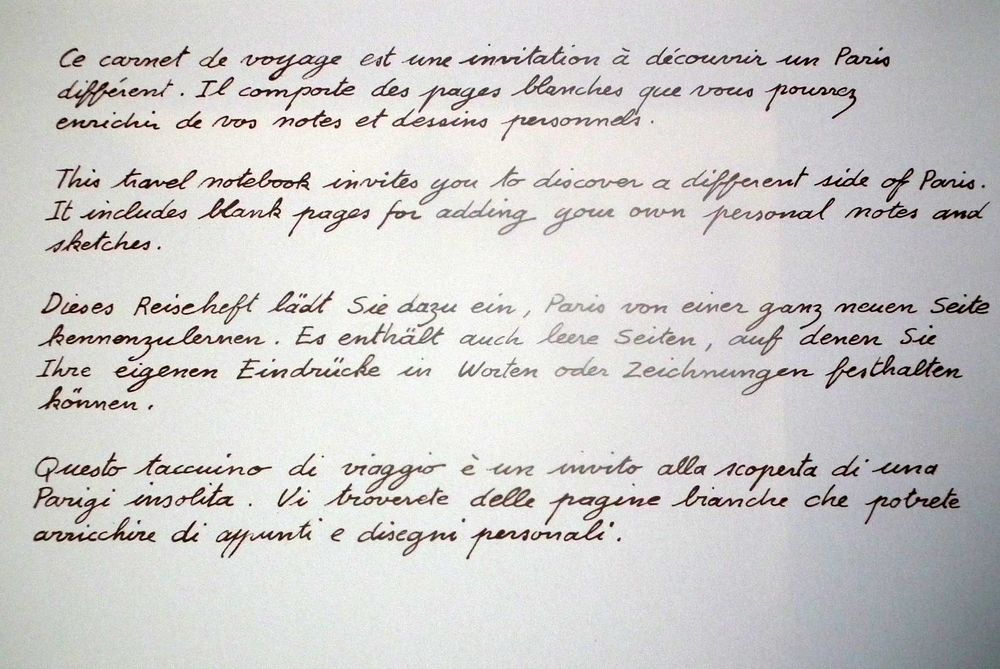 Ce carnet de voyage est une invitation à découvrir un Paris
différent. Il comporte des pages blanches que vous pourrez
enrichir de vos notes et dessins personnels.
This travel notebook invites you to discover a different side of Paris.
It includes blank pages for adding your own personal notes and
sketches.
Dieses Reiseheft lädt Sie dazu ein, Paris von einer ganz neuen Seite
kennenzulernen. Es enthält auch leere Seiten, auf denen Sie
Ihre eigenen Eindrücke in Worten oder Zeichnungen festhalten
können.
Questo taccuino di viaggio è un invito alla scoperta di una
Parigi insolita. Vi troverete delle pagine bianche che potrete
arricchire di appunti e disegni personali.